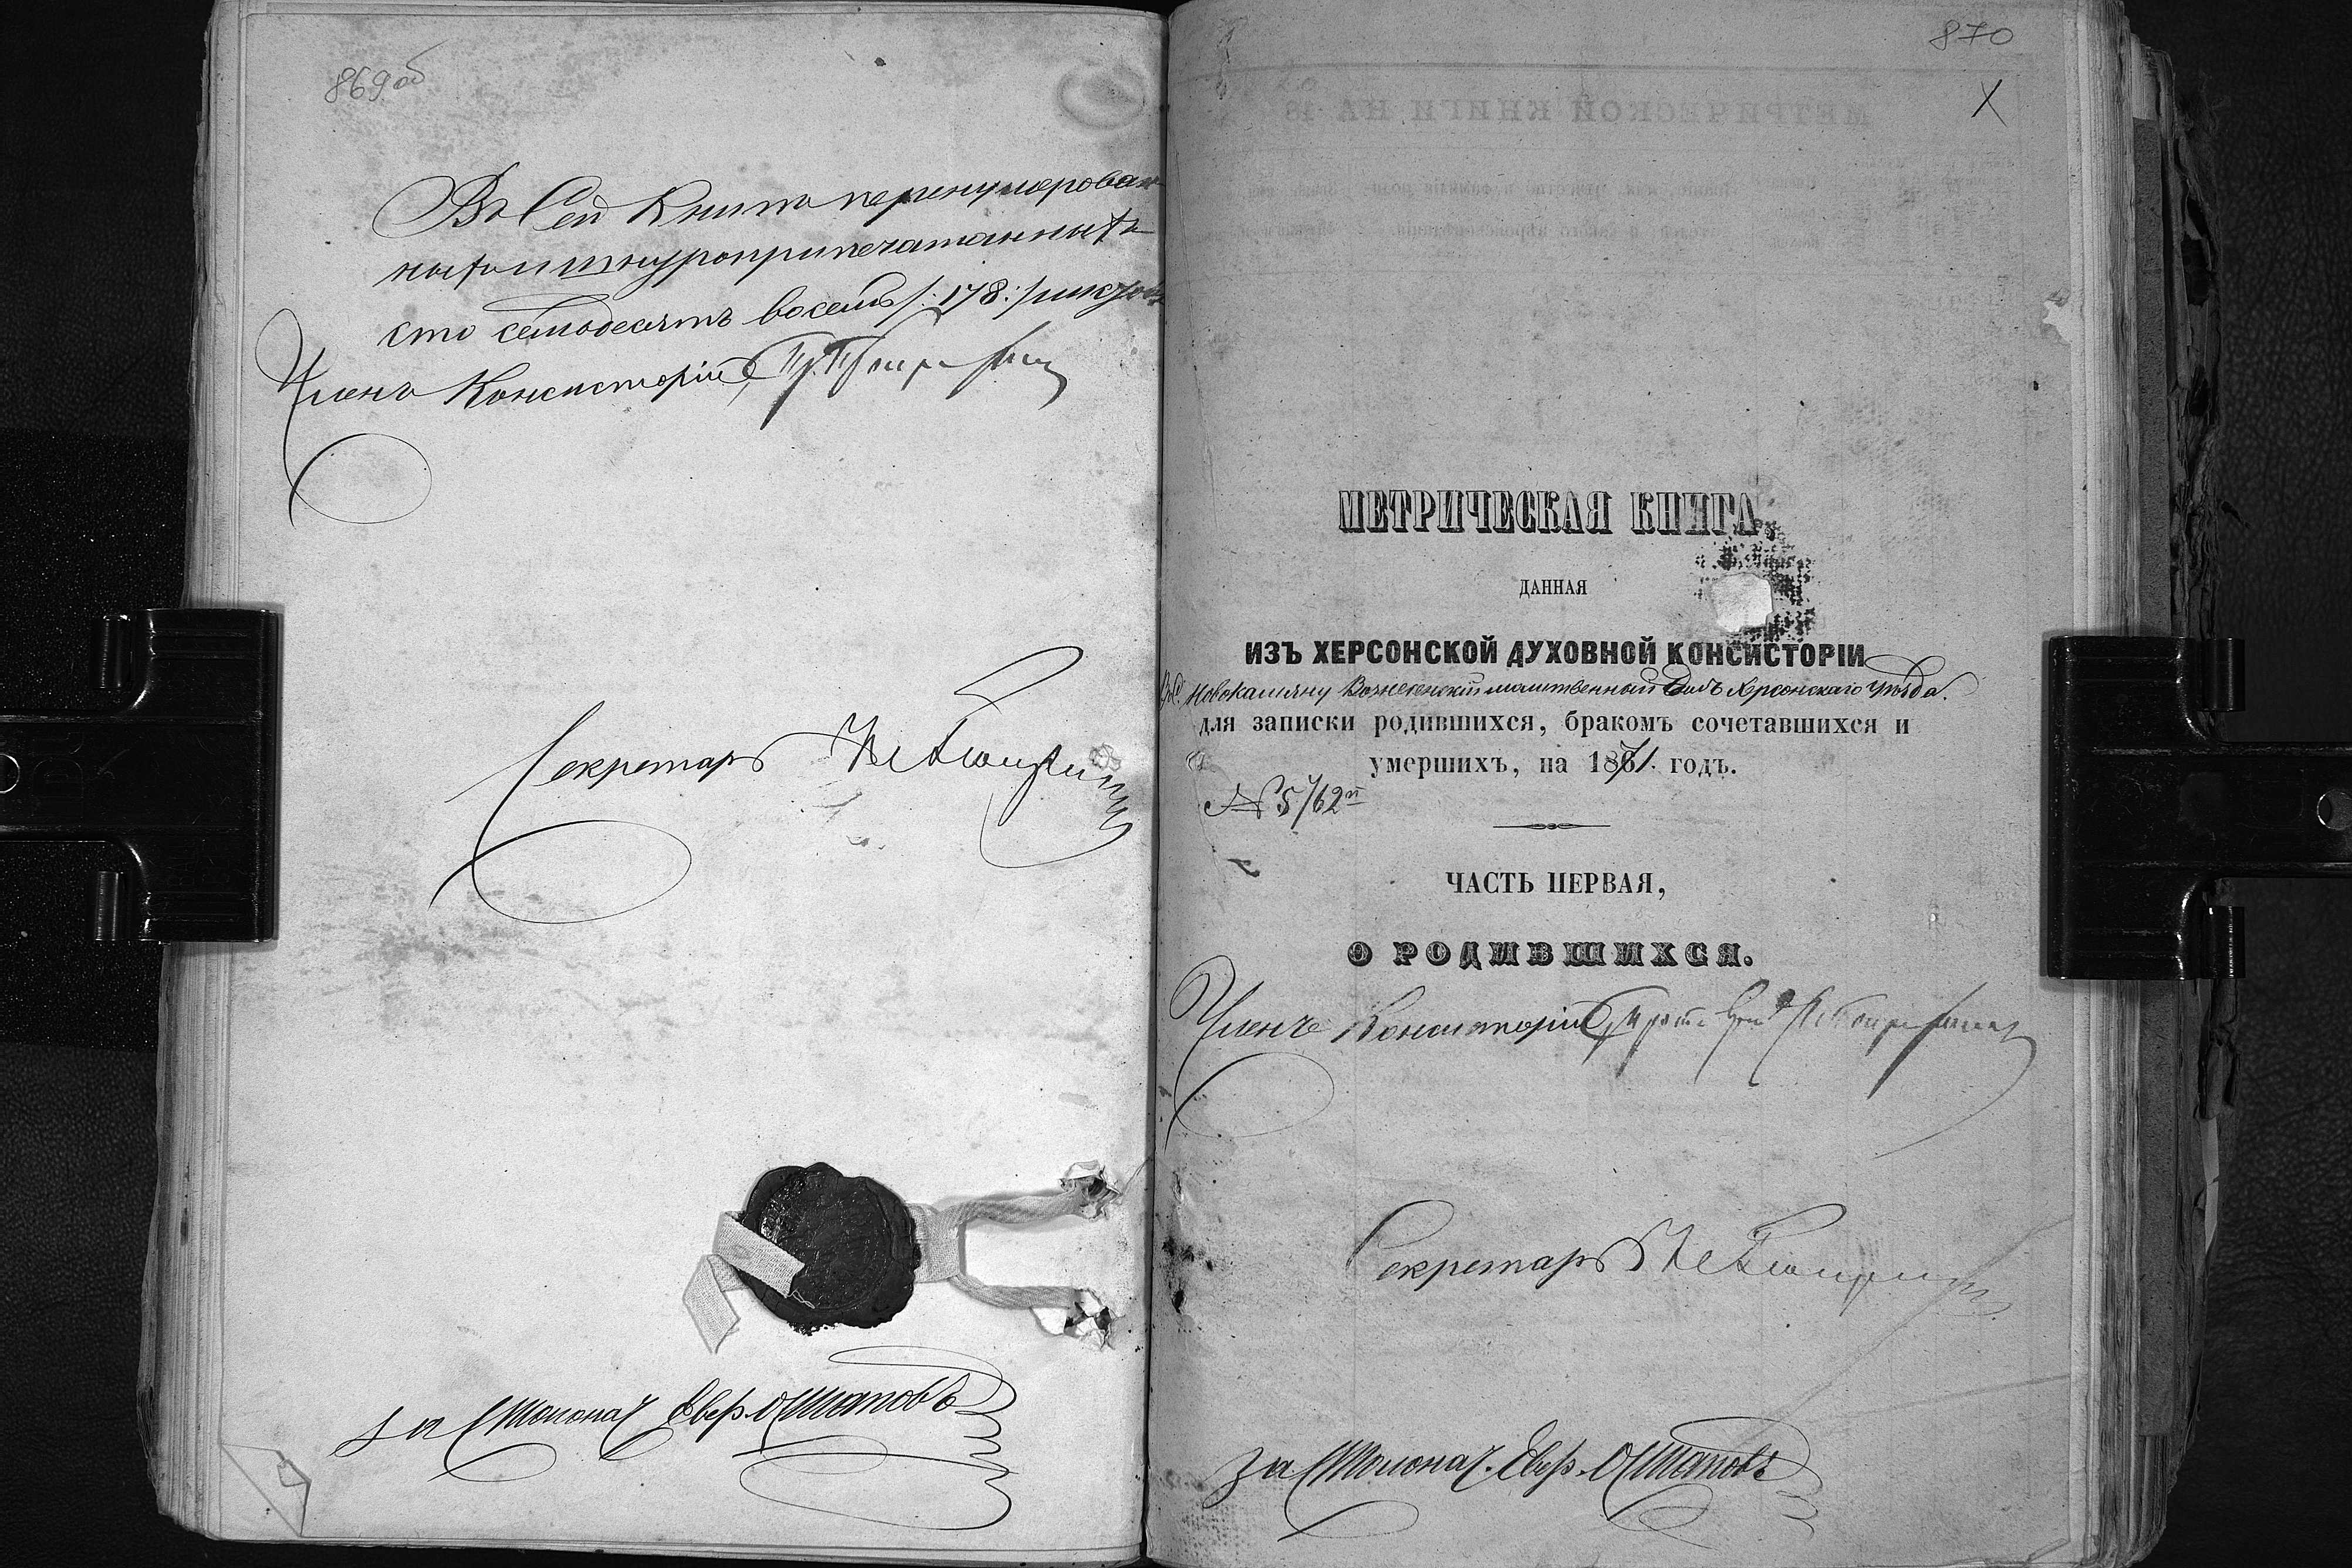 869 об
Въ Сей Книги перенумерован
ныхъ и шнуроприпечатанныхъ
сто семьдесятъ восемь /:178:/ листовъ
Членъ Консисторіи
Секретарь
за Столонач. Евер. Остаповъ
870
X
МЕТРИЧЕСКАЯ КНИГА,
ДАННАЯ
ИЗЪ ХЕРСОНСКОЙ ДУХОВНОЙ КОНСИСТОРІИ
Вознесенскій молитвенный Домъ Херсонскаго уѣзда.
для записки родившихся, бракомъ сочетавшихся и
умершихъ, на 1871. годъ.
№ 5762й
ЧАСТЬ ПЕРВАЯ,
О РОДИВШИХСЯ.
Членъ Консисторіи
Секретарь
за Столонач. Евер. Остаповъ